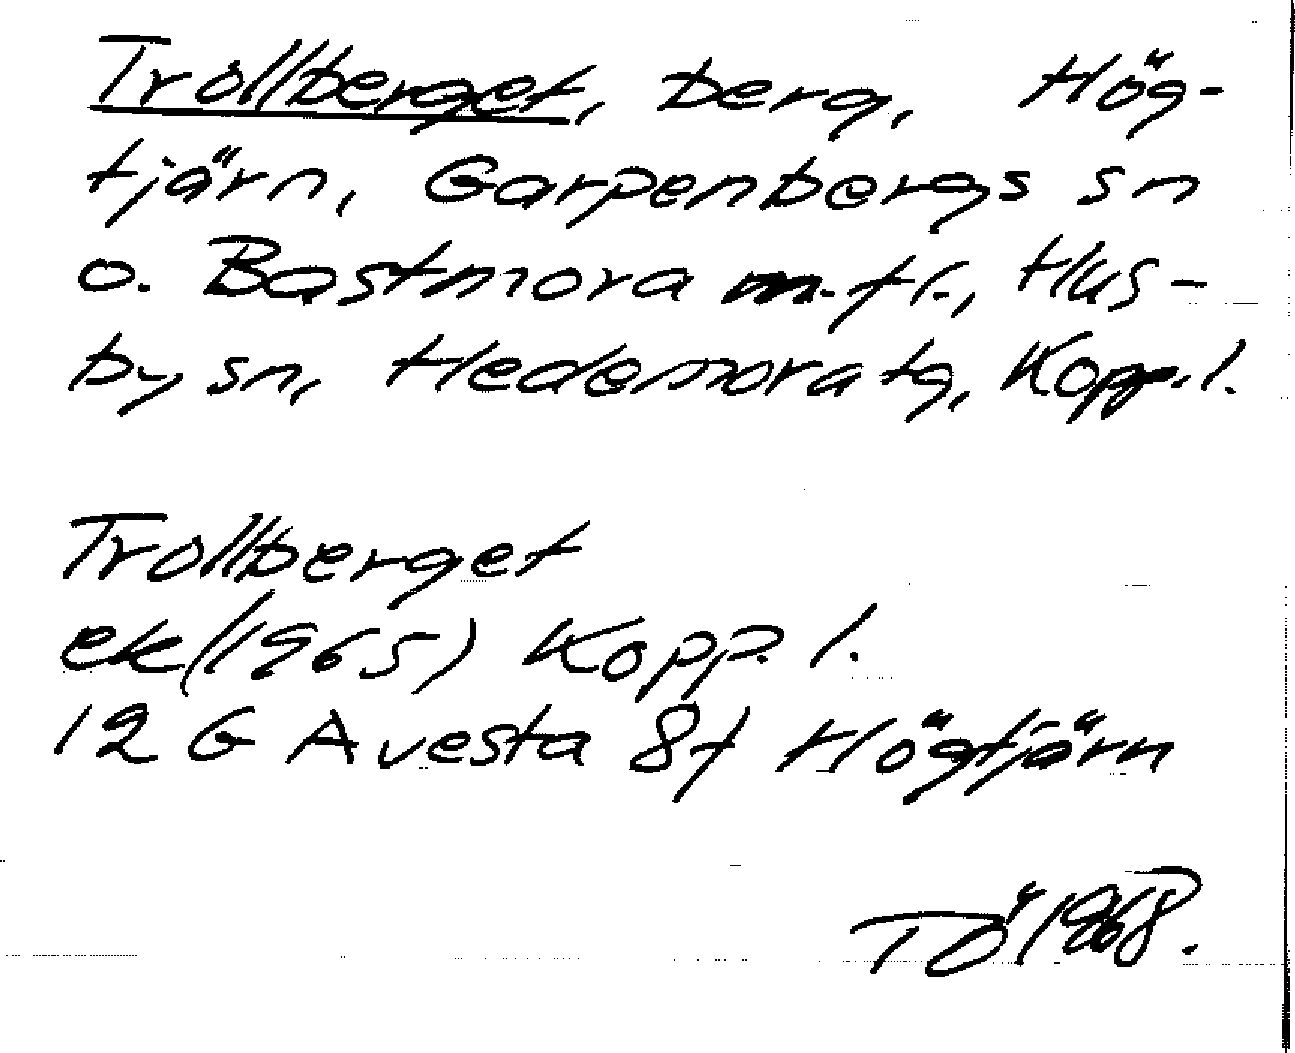 Trollberget, berg, Hög-
tjärn, Garpenbergs sn
o. Bastmora m.fl., Hus-
by sn, Hedemora tg, Kopp. l.
Trollberget
ek (1965) Kopp. l.
12 G Avesta 8f Högtjärn
TÖ 1968.